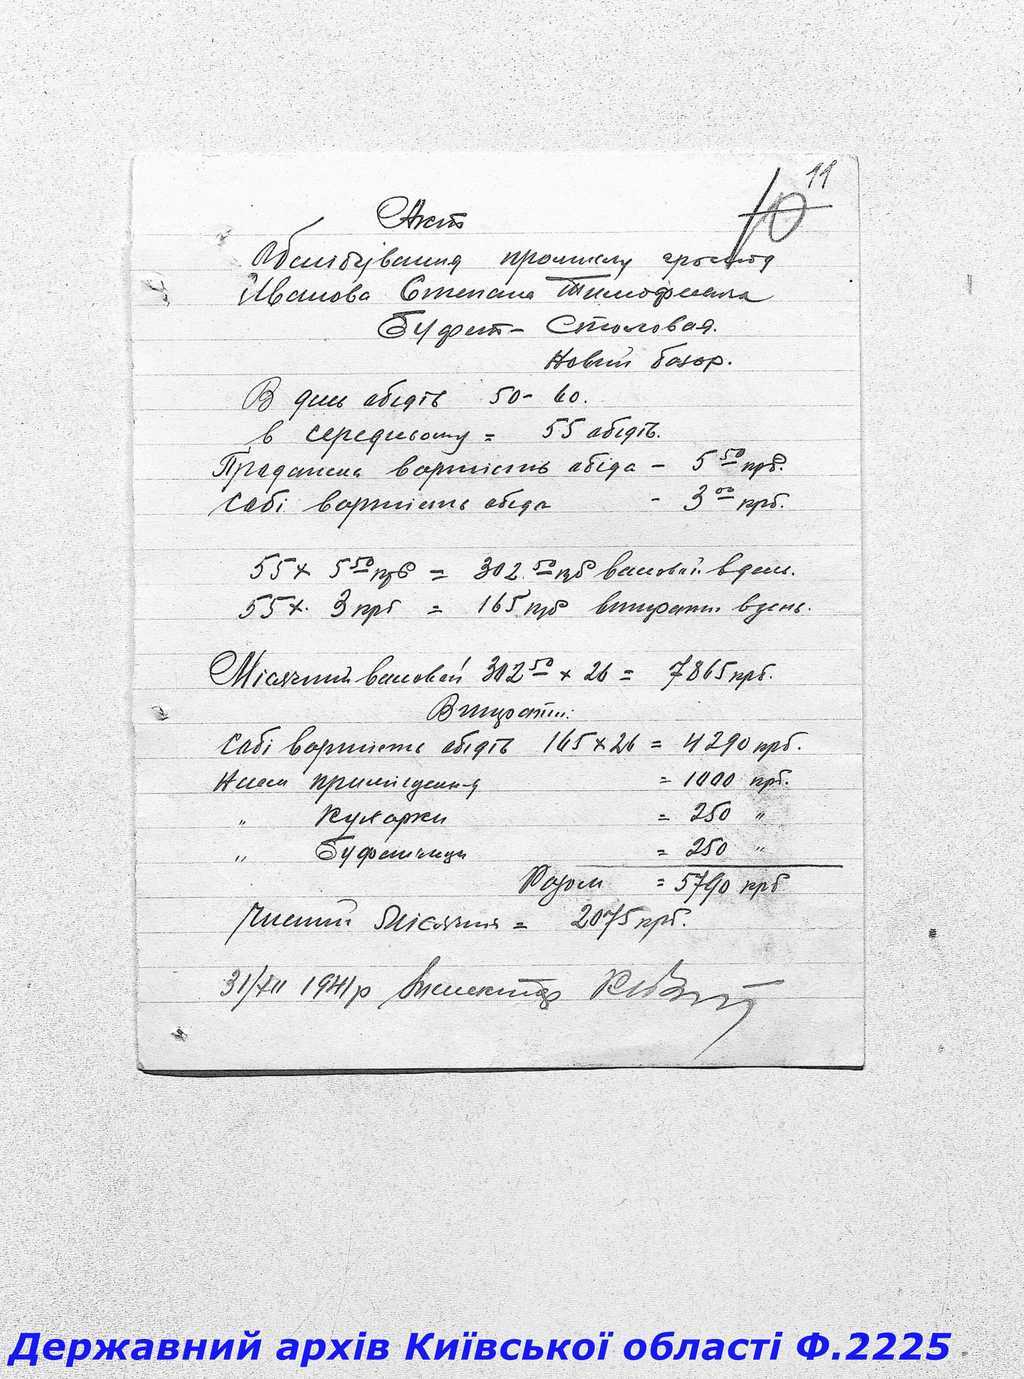 11
10
Акт
Обслідування промислу гр-на
Иванова Степана Тимофеевича
Буфет - Столовая.
Новий базар.
В день обідів 50 - 60.
в середньому = 55 обідів.
Продажна вартість обіда - 5 50 крб.
Собі вартість обіда - 3 00 крб.
55 х 5 50 крб = 302. 50 крб валовий в день.
55 х. 3 крб = 165 крб витрати в день.
Місячний валовий 302 50 х 26 = 7865 крб.
Витрати:
Собі вартість обідів 165 х 26 = 4290 крб.
Наем приміщення = 1000 крб.
" Кухарки = 250 "
" Буфетчицы = 250 "
Разом = 5790 крб
Чистий місячний = 2075 крб.
31/XII 1941 р Інспектор
Державний архів Київської області Ф.2225